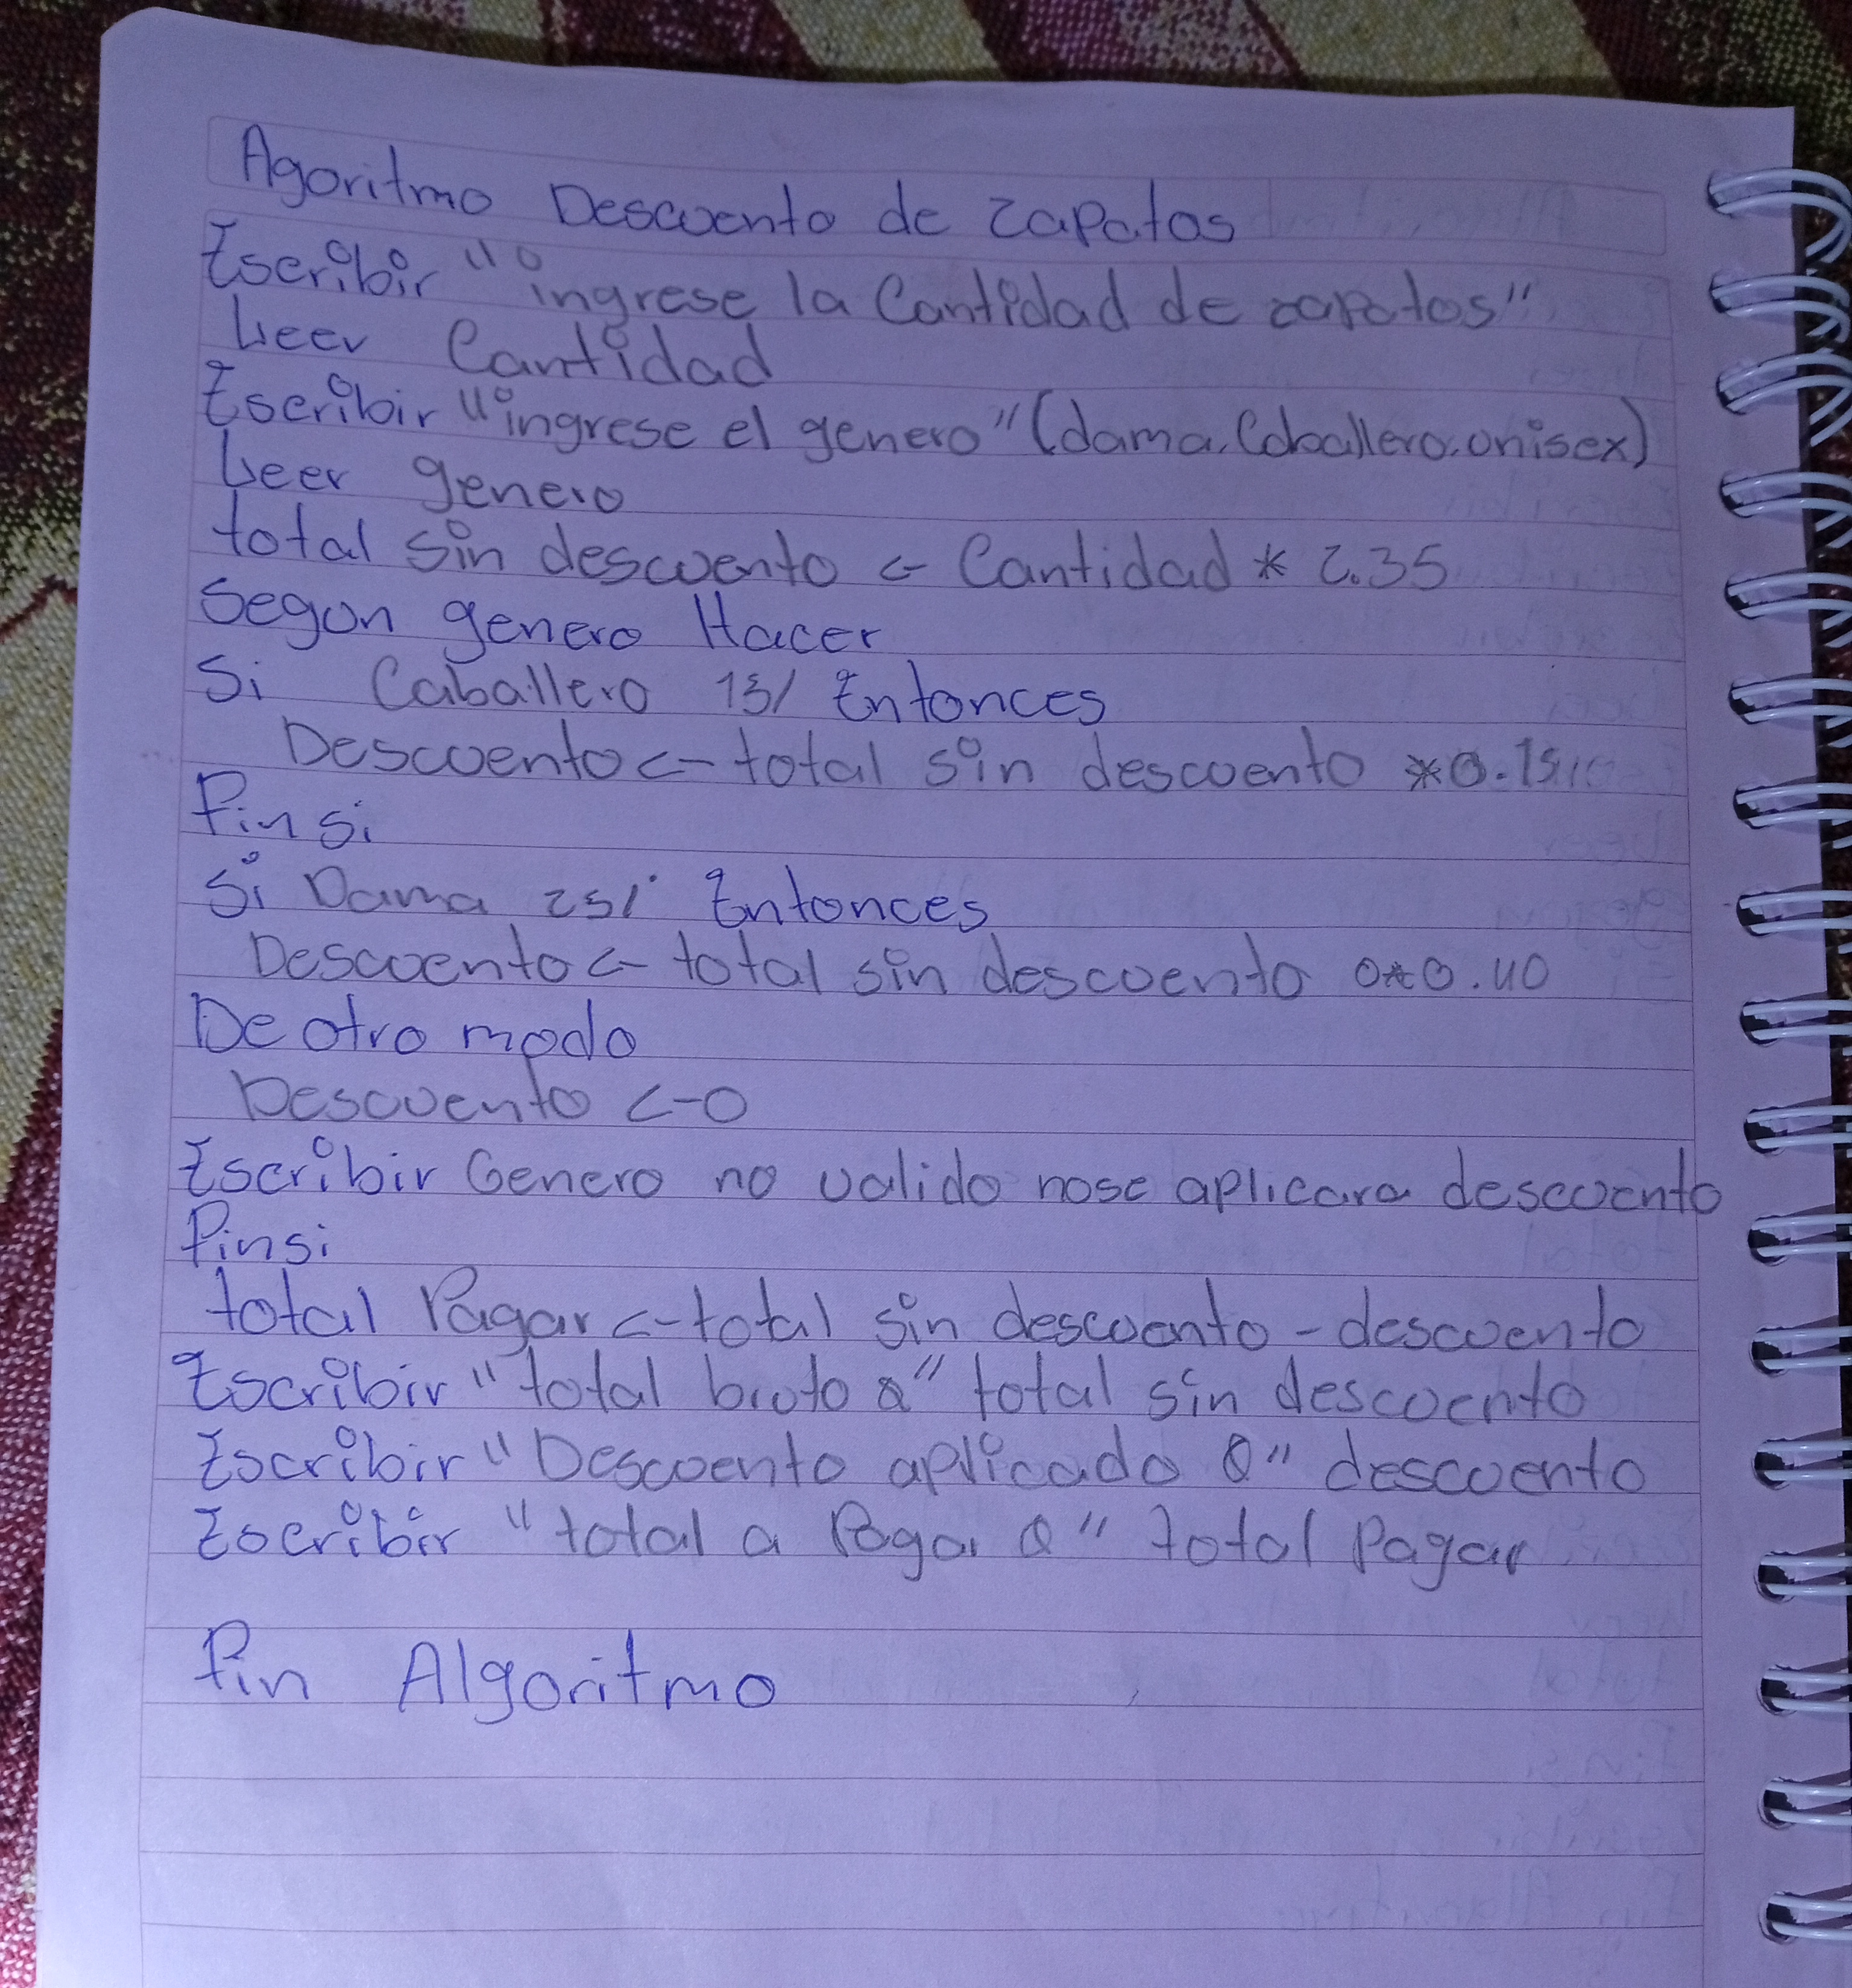 Agoritmo Descuento de zapatos
Escribir "ingrese la Cantidad de zapatos"
Leer Cantidad
Escribir "ingrese el genero" (dama, Caballero, unisex)
Leer genero
total sin descuento <- Cantidad * 2.35
Segun genero Hacer
Si Caballero 15/ Entonces
Descuento <- total sin descuento *0.15
Finsi
Si Dama 25/ Entonces
Descuento <- total sin descuento 0*0.40
De otro modo
Descuento <-0
Escribir Genero no valido nose aplicara descuento
Finsi
total Pagar <- total sin descuento - descuento
Escribir "total bruto Q" total sin descuento
Escribir "Descuento aplicado Q" descuento
Escribir "total a Pagar Q" total Pagar
Fin Algoritmo